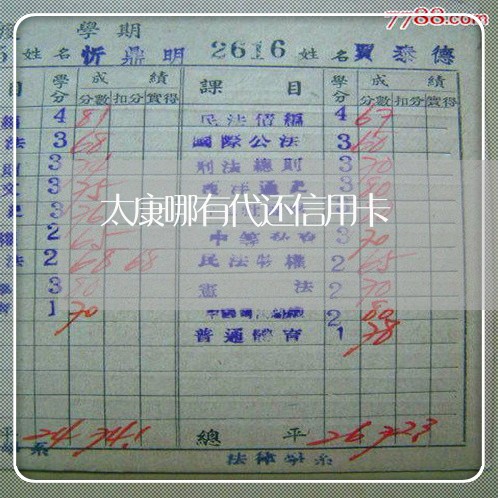 7788.com
學期
姓名 忻鼎明 2616 姓名 賈泰德
目 學分 成績 課目 學分 成績
分數 扣分 實得 分數 扣分 實得
4 81 民法債編 4 67
法 3 68 國際公法 3 60
3 刑法總則 3 70
3 75 西洋通史 3 80
太康哪有代还信用卡
2 65 3 70
法 2 68 68 民法物權 2 65
3 80 憲法 2 70
1 70 2 80
普通體育 1 78
平 24 74.1 總平 26 72.3
系 法律學系